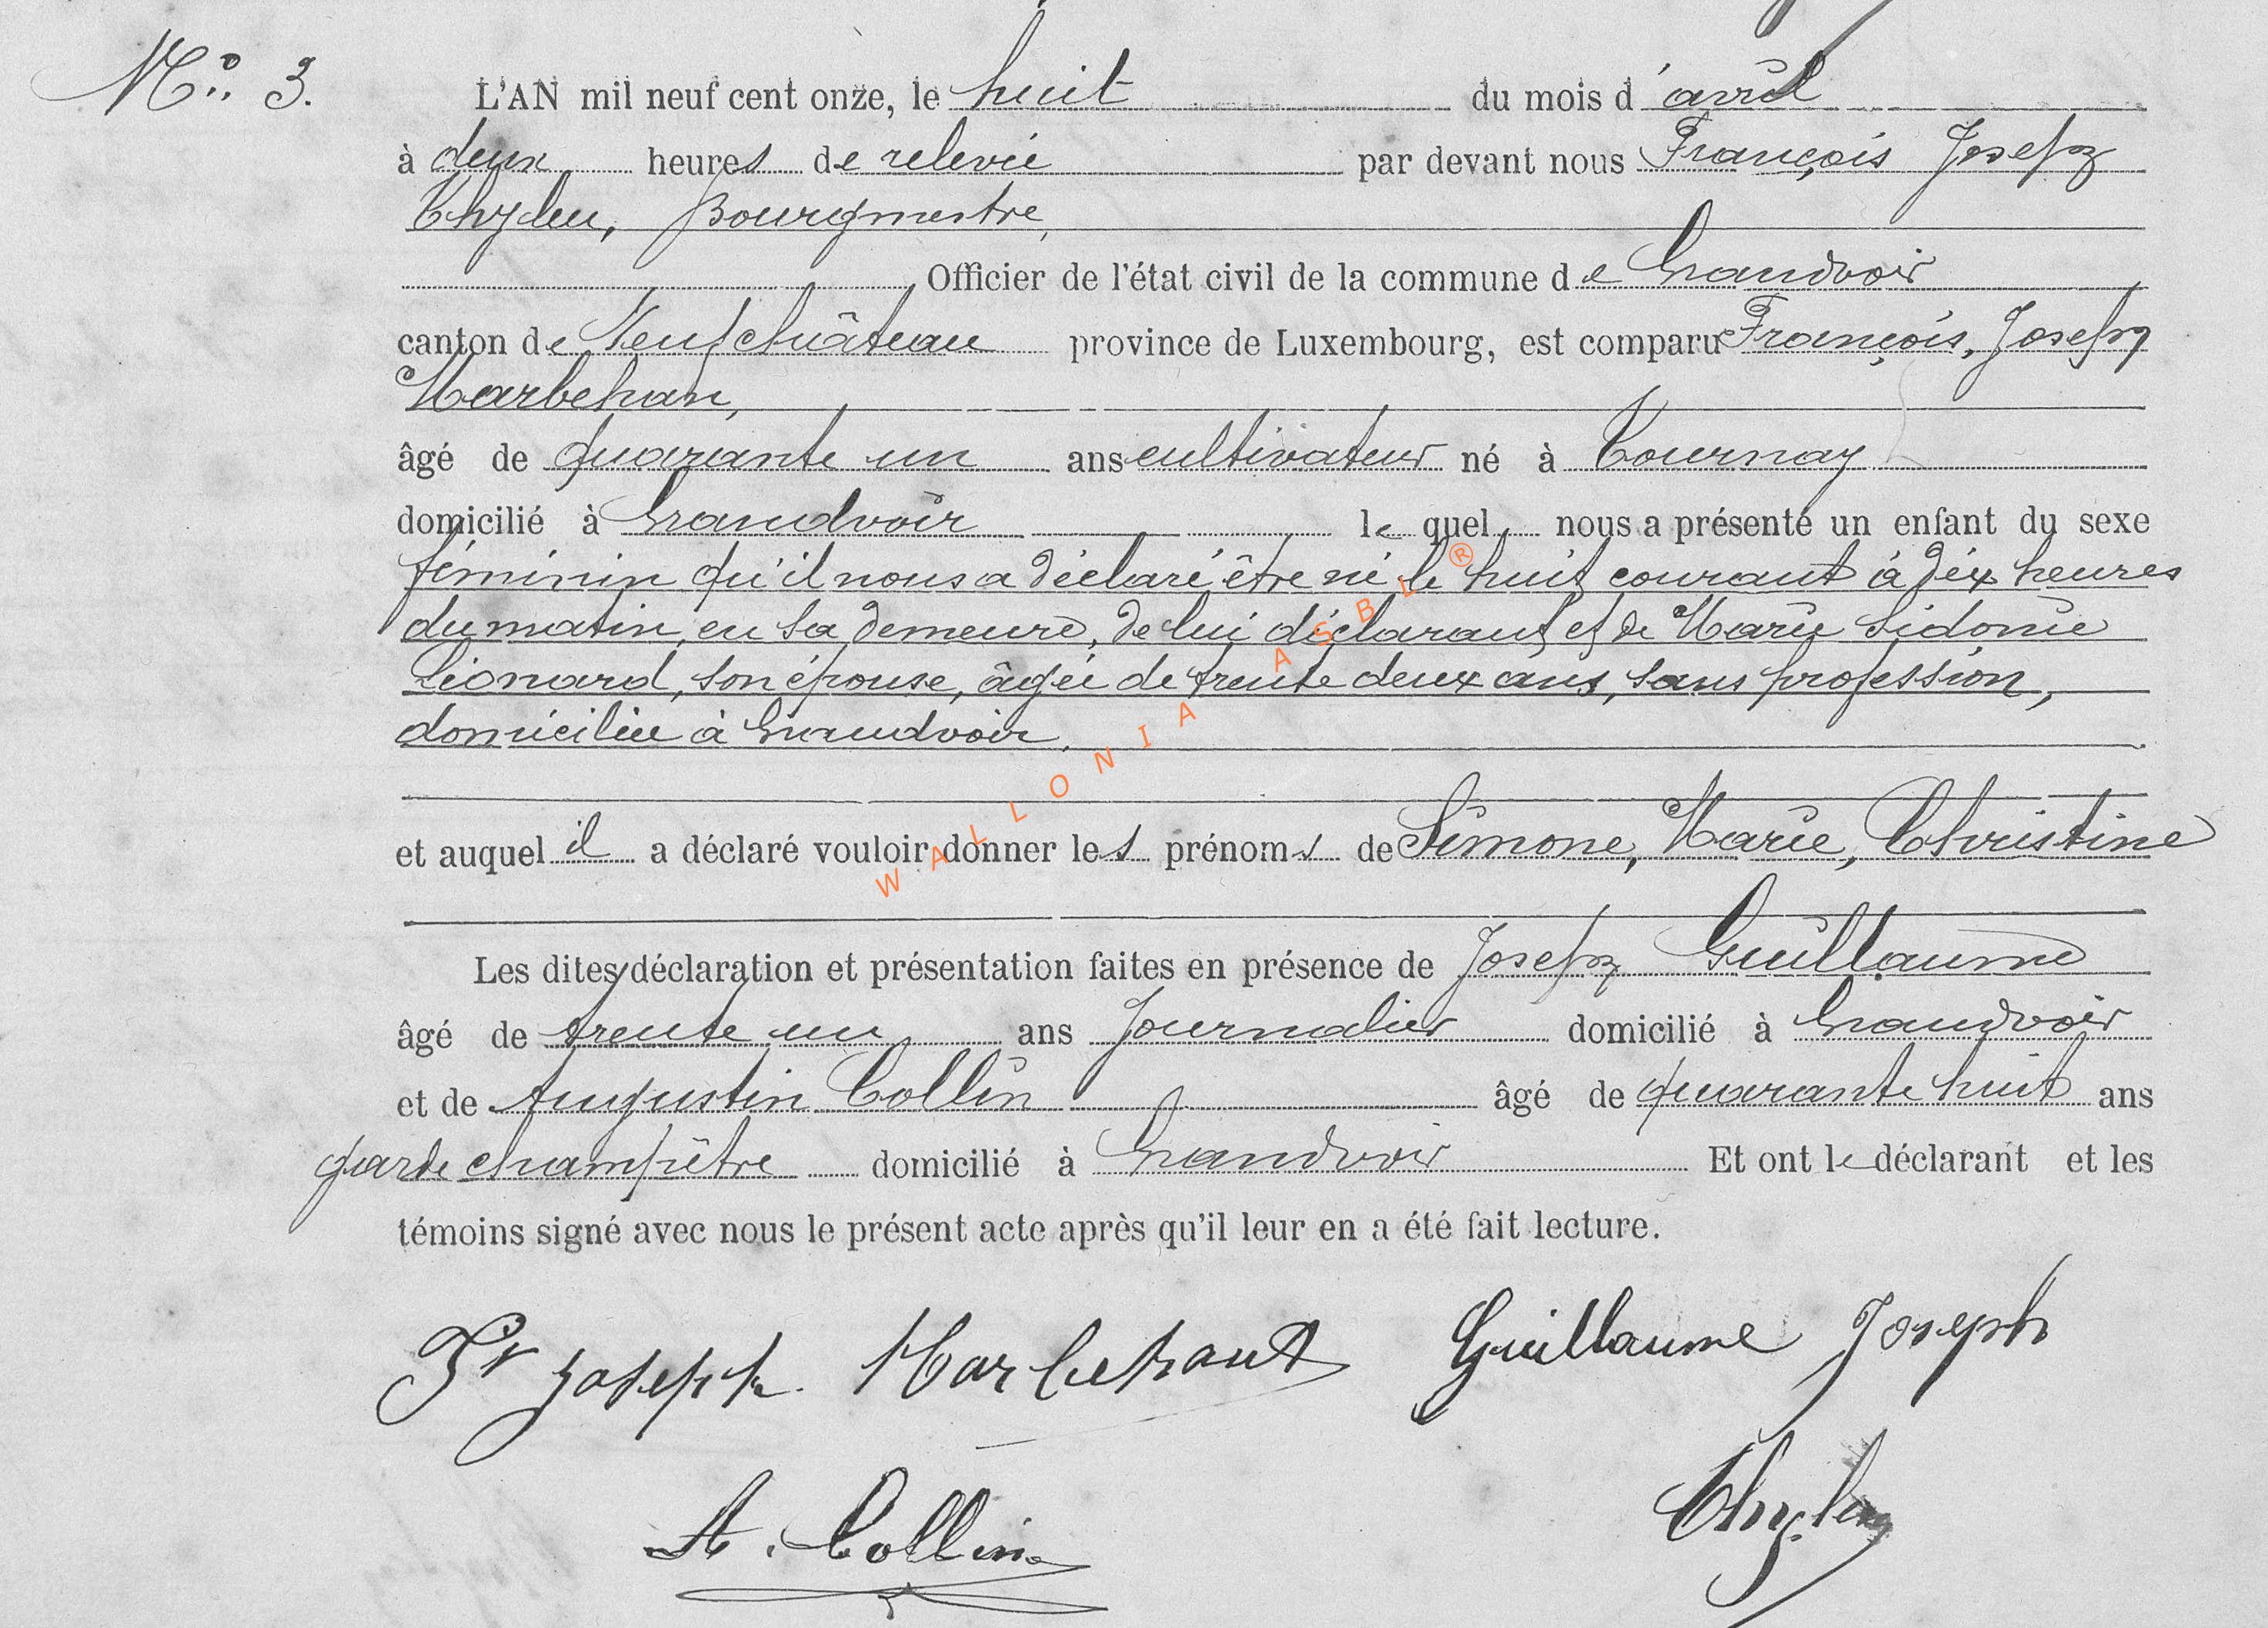 N° 3.
L'AN mil neuf cent onze, le huit du mois d'avril
à deux heures de relevée par devant nous François Joseph
Thylen, Bourgmestre,
Officier de l'état civil de la commune de Grandvoir
canton de Neufchâteau province de Luxembourg, est comparu François, Joseph
Marbehan,
âgé de quarante un ans cultivateur né à Tournay
domicilié à Grandvoir le quel nous a présenté un enfant du sexe
féminin qu'il nous a déclaré être né le huit courant à dix heures
du matin, en sa demeure, de lui déclarant et de Marie Sidonie
Léonard, son épouse, âgée de trente deux ans, sans profession,
domiciliée à Grandvoir.
et auquel il a déclaré vouloir donner les prénoms de Simone, Marie, Christine
Les dites déclaration et présentation faites en présence de Joseph Guillaume
âgé de trente un ans Journalier domicilié à Grandvoir
et de Augustin Collin âgé de quarante huit ans
garde champêtre domicilié à Grandvoir Et ont le déclarant et les
témoins signé avec nous le présent acte après qu'il leur en a été fait lecture.
Fs Joseph Marbehant Guillaume Joseph
A. Collin Thylen
WALLONIA ASBL ®